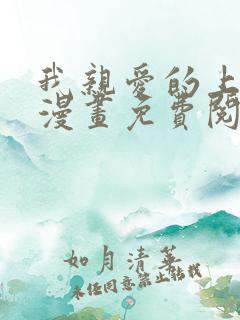 我親愛的上
漫畫免費閱
如月清華
未任同意禁止转载